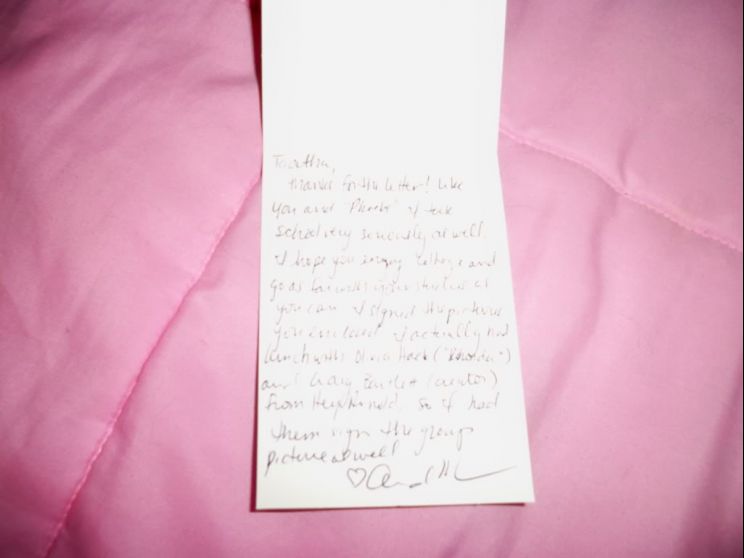 Tabitha,
Thanks for the letter! Like
you and "Phoebe" I take
school very seriously as well.
I hope you enjoy college and
go as far with your studies as
you can. I signed the pictures
you enclosed. I actually had
lunch with Olivia Hack ("Rhonda")
and Craig Bartlett (creator)
from Hey Arnold, so I had
them sign the group
picture as well